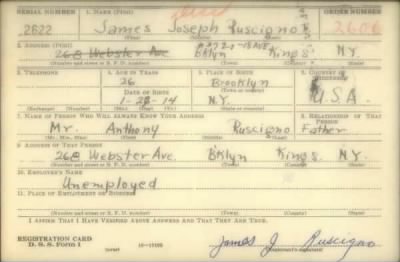 SERIAL NUMBER 1. NAME (Print) ORDER NUMBER
2622 James Joseph Ruscigno
(First) (Middle) (Last)
2. ADDRESS (Print) 18 AVE
268 Webster Ave Bklyn Kings N.Y.
(Number and street or R. F. D. number) (Town) (County) (State)
3. TELEPHONE 4. AGE IN YEARS 5. PLACE OF BIRTH 6. COUNTRY OF CITIZENSHIP
26 Brooklyn
DATE OF BIRTH (Town or county)
14 N.Y. U.S.A.
(Exchange) (Number) (Mo.) (Day) (Yr.) (State or country)
7. NAME OF PERSON WHO WILL ALWAYS KNOW YOUR ADDRESS 8. RELATIONSHIP OF THAT PERSON
Mr. Anthony Ruscigno Father
(Mr., Mrs., Miss) (First) (Middle) (Last)
9. ADDRESS OF THAT PERSON
268 Webster Ave. B'Klyn Kings N.Y.
(Number and street or R. F. D. number) (Town) (County) (State)
10. EMPLOYER'S NAME
Unemployed
11. PLACE OF EMPLOYMENT OR BUSINESS
(Number and street or R. F. D. number) (Town) (County) (State)
I AFFIRM THAT I HAVE VERIFIED ABOVE ANSWERS AND THAT THEY ARE TRUE.
REGISTRATION CARD
D. S. S. Form 1 (over) James J Ruscigno
(Registrant's signature)